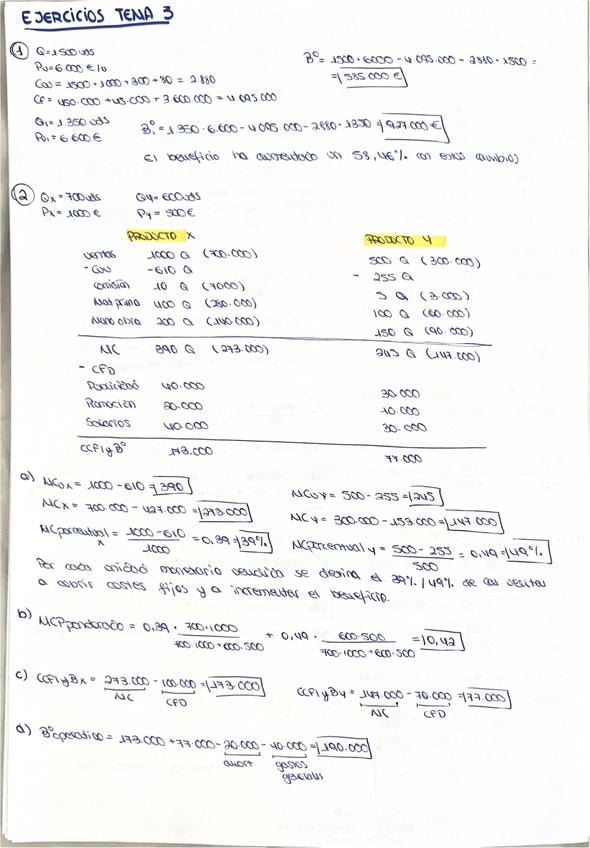 EJERCICIOS TEMA 3
① Q=1500 uds
Pv=6.000 €/u
Cvu = 1500 + 1000 + 300 + 80 = 2880
CF = 450.000 + 45.000 + 3.600.000 = 4.095.000
Q1 = 1.350 uds
Pv1 = 6600 €
Bº = 1500 · 6000 - 4.095.000 - 2880 · 1500 =
= 585.000 €
Bº1 = 1.350 · 6.600 - 4.095.000 - 2880 · 1350 = 927.000 €
El beneficio ha aumentado un 58,46% con estos cambios
② Qx = 700 uds Qy = 600 uds
Px = 1000 € Py = 500 €
PRODUCTO X PRODUCTO Y
Ventas 1000 Q (700.000) 500 Q (300.000)
- Cvu -610 Q - 255 Q
Comisión 10 Q (7000) 5 Q (3.000)
Mat prima 400 Q (280.000) 100 Q (60.000)
Mano obra 200 Q (140.000) 150 Q (90.000)
MC 390 Q (273.000) 245 Q (147.000)
- CFD
Publicidad 40.000 30.000
Promoción 20.000 10.000
Salarios 40.000 30.000
CCFI y Bº 173.000 77.000
a) MCux = 1000 - 610 = 390 MCuy = 500 - 255 = 245
MCx = 700.000 - 427.000 = 273.000 MCy = 300.000 - 153.000 = 147.000
MCporcentual x = 1000-610 / 1000 = 0,39 = 39% MCporcentual y = 500 - 255 / 500 = 0,49 = 49%
Por cada unidad monetaria vendida se destina el 39% / 49% de las ventas
a cubrir costes fijos y a incrementar el beneficio.
b) MCPponderado = 0,39 · 700·1000 / 700·1000+600·500 + 0,49 · 600·500 / 700·1000+600·500 = 0,42
c) CCFI y Bx = 273.000 - 100.000 = 173.000 CCFI y By = 147.000 - 70.000 = 77.000
MC CFD MC CFD
d) Bº operativo = 173.000 + 77.000 - 20.000 - 40.000 = 190.000
amort gastos
generales